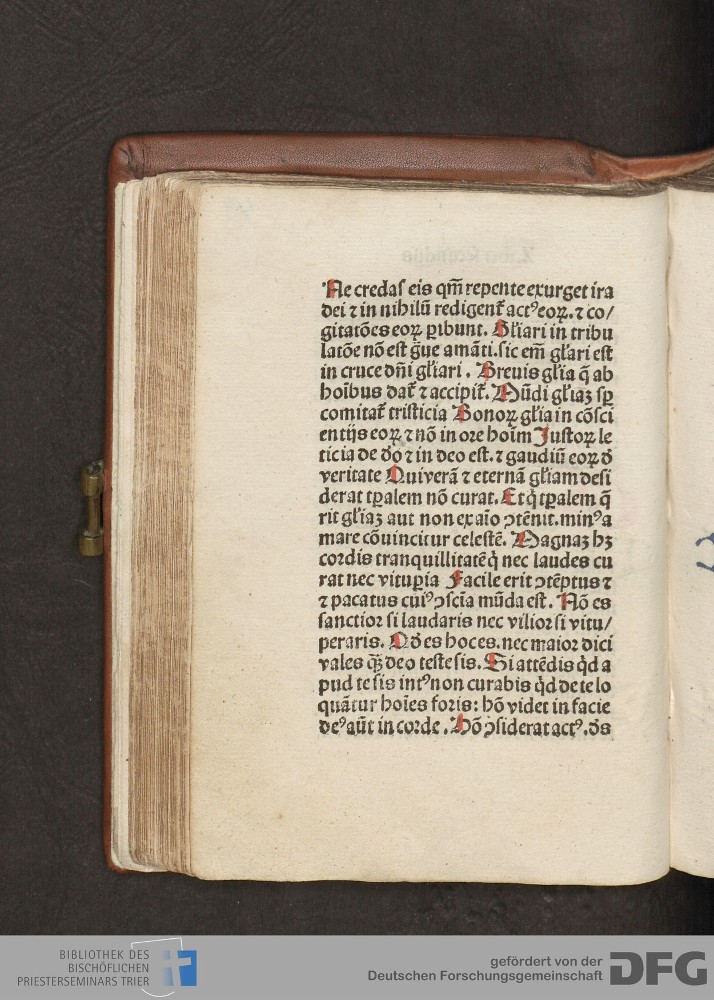 Ne credas eis qm̄ repente exurget ira
dei ⁊ in nihilū redigent᷑ actꝰ eoꝝ. ⁊ co/
gitatōes eoꝝ ꝑibunt. Gl'iari in tribu
latōe nō est g̃ue amāti. sic em̄ gl'ari est
in cruce dn̄i gl'iari. Breuis gl'ia q̄ ab
hoībus dat᷑ ⁊ accipit᷑. Mūdi gl'iaꝫ sꝑ
comitat᷑ tristicia Bonoꝝ gl'ia in cōsci
entijs eoꝝ ⁊ nō in ore hoīm Iustoꝝ le
ticia de d̄o ⁊ in deo est. ⁊ gaudiū eoꝝ d̄
veritate Qui verā ⁊ eternā gl'iam desi
derat tꝑalem nō curat. Et q̇ tꝑalem q̄
rit gl'iaꝫ aut non ex aīo ↄtēnit. minꝰ a
mare cōuincitur celestē. Magnaꝫ hꝫ
cordis tranquillitatē q̇ nec laudes cu
rat nec vituꝑia Facile erit ↄtēptus ⁊
⁊ pacatus cuiꝰ ↄscīa mūda est. Nō es
sanctior si laudaris nec vilior si vitu/
peraris. Qd̄ es hoc es. nec maior dici
vales qꝫ̄ deo teste sis. Si attēdis q̇d a
pud te sis intꝰ non curabis q̇d de te lo
quātur hoīes foris: hō videt in facie
deꝰ aūt in corde. Hō ↄsiderat actꝰ. d̄s
BIBLIOTHEK DES
BISCHÖFLICHEN
PRIESTERSEMINARS TRIER
gefördert von der
Deutschen Forschungsgemeinschaft
DFG